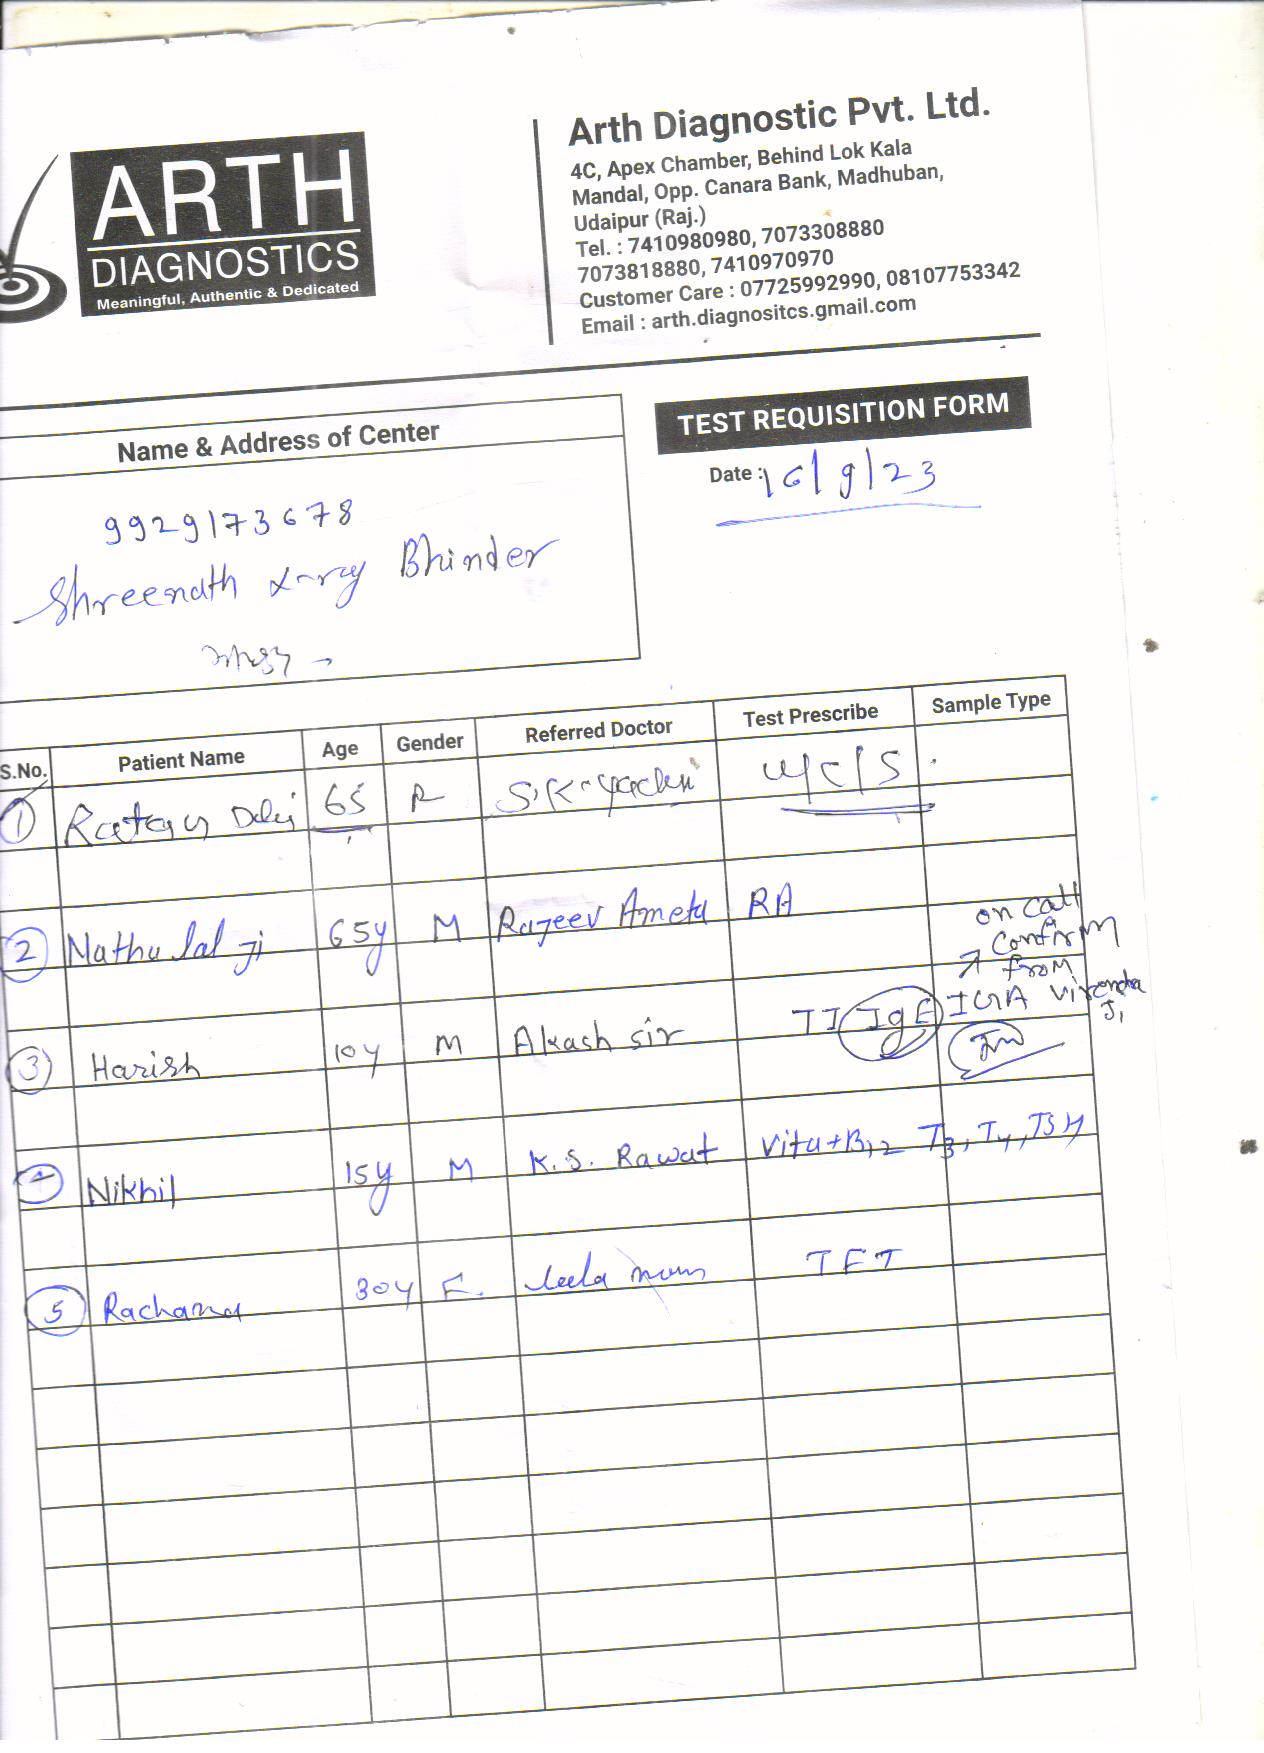 ARTH
DIAGNOSTICS
Meaningful, Authentic & Dedicated
Arth Diagnostic Pvt. Ltd.
4C, Apex Chamber, Behind Lok Kala
Mandal, Opp. Canara Bank, Madhuban,
Udaipur (Raj.)
Tel. : 7410980980, 7073308880
7073818880, 7410970970
Customer Care : 07725992990, 08107753342
Email : arth.diagnositcs.gmail.com
Name & Address of Center
TEST REQUISITION FORM
Date : 16/9/23
9929173678
Shreenath x-ray Bhinder
S.No. Patient Name Age Gender Referred Doctor Test Prescribe Sample Type
1 65 S.K. U/C/S
2 Nathu lal ji 65y M Rajeev Ameta RA
on call
confirm
from
Virendra
Ji
3 Harish 10y M Akash sir IgE IGA
4 Nikhil 15y M K.S. Rawat B12 T3, T4, TSH
5 Rachana 30y F. leela mam TFT